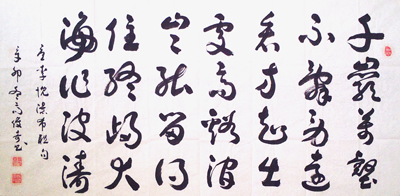 千巖萬壑
不辭勞遠
看方知出
處高谿澗
豈能留得
住終歸大
海作波濤
李忱瀑布聯句
辛卯高書